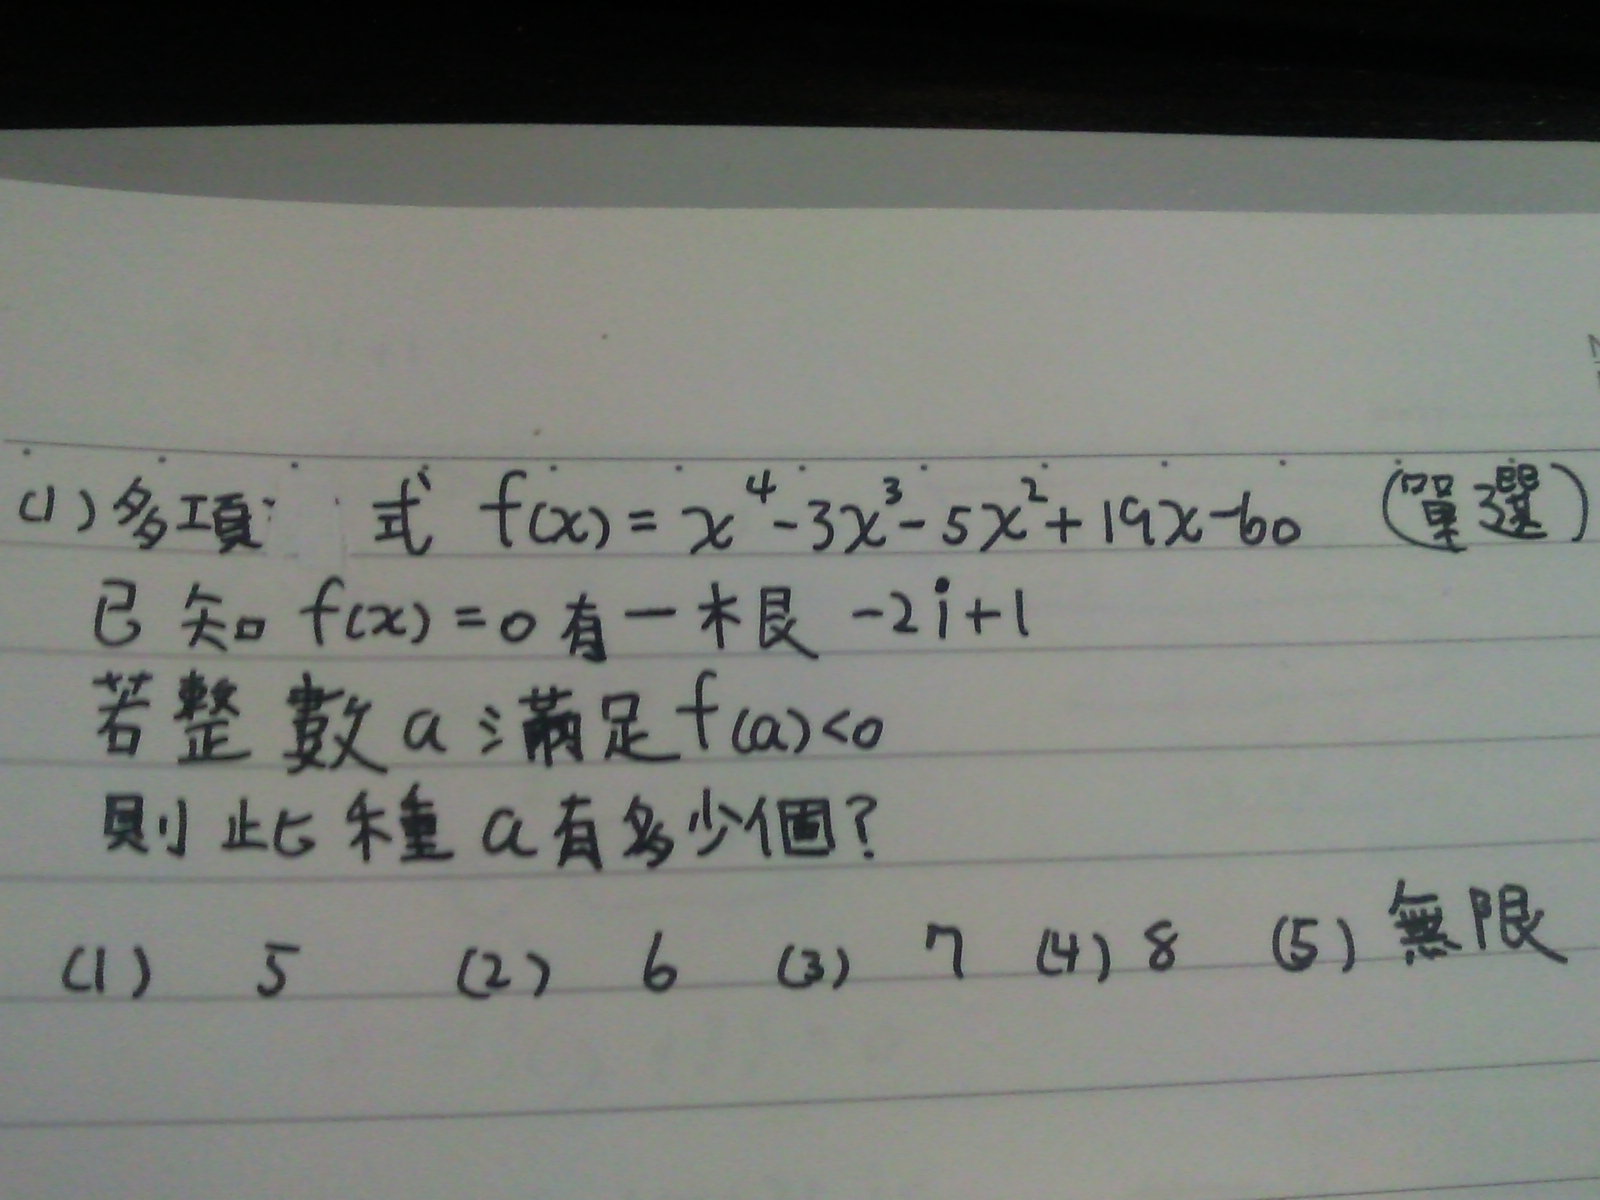 (1) 多項式 f(x) = x⁴-3x³-5x²+19x-60 (單選)
已知 f(x)=0 有一根 -2i+1
若整數 a 滿足 f(a)<0
則此種 a 有多少個?
(1) 5 (2) 6 (3) 7 (4) 8 (5) 無限